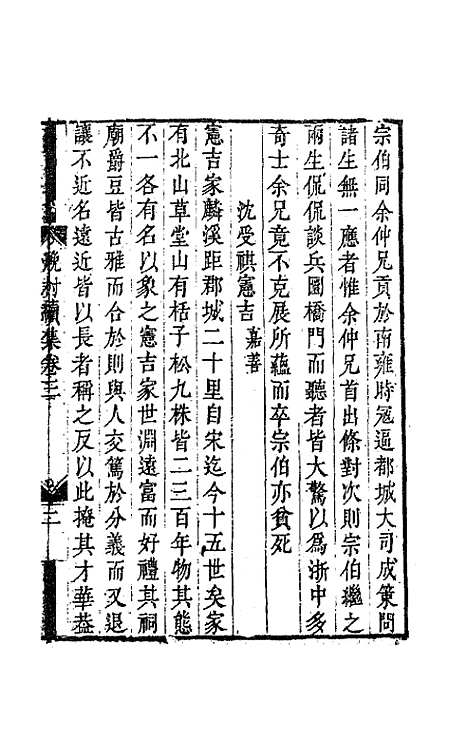 宗伯同余仲兄貢於南雍時冦逼都城大司成策問
諸生無一應者惟余仲兄首出條對次則宗伯繼之
兩生侃侃談兵圜橋門而聽者皆大驚以爲浙中多
奇士余兄竟不克展所蘊而卒宗伯亦貧死
沈受祺憲吉 嘉善
憲吉家麟溪距郡城二十里自宋迄今十五世矣家
有北山草堂山有栝子松九株皆二三百年物其態
不一各有名以象之憲吉家世淵遠富而好禮其祠
廟爵豆皆古雅而合於則與人交篤於分義而又退
讓不近名遠近皆以長者稱之反以此掩其才華葢
續集卷三
三